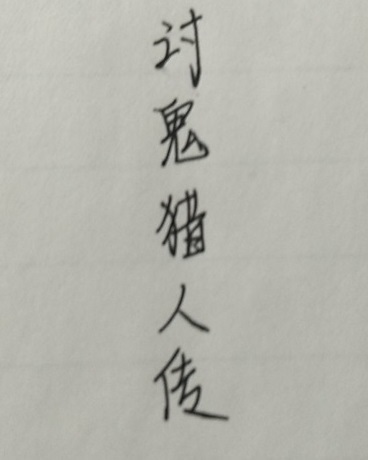 讨鬼猎人传